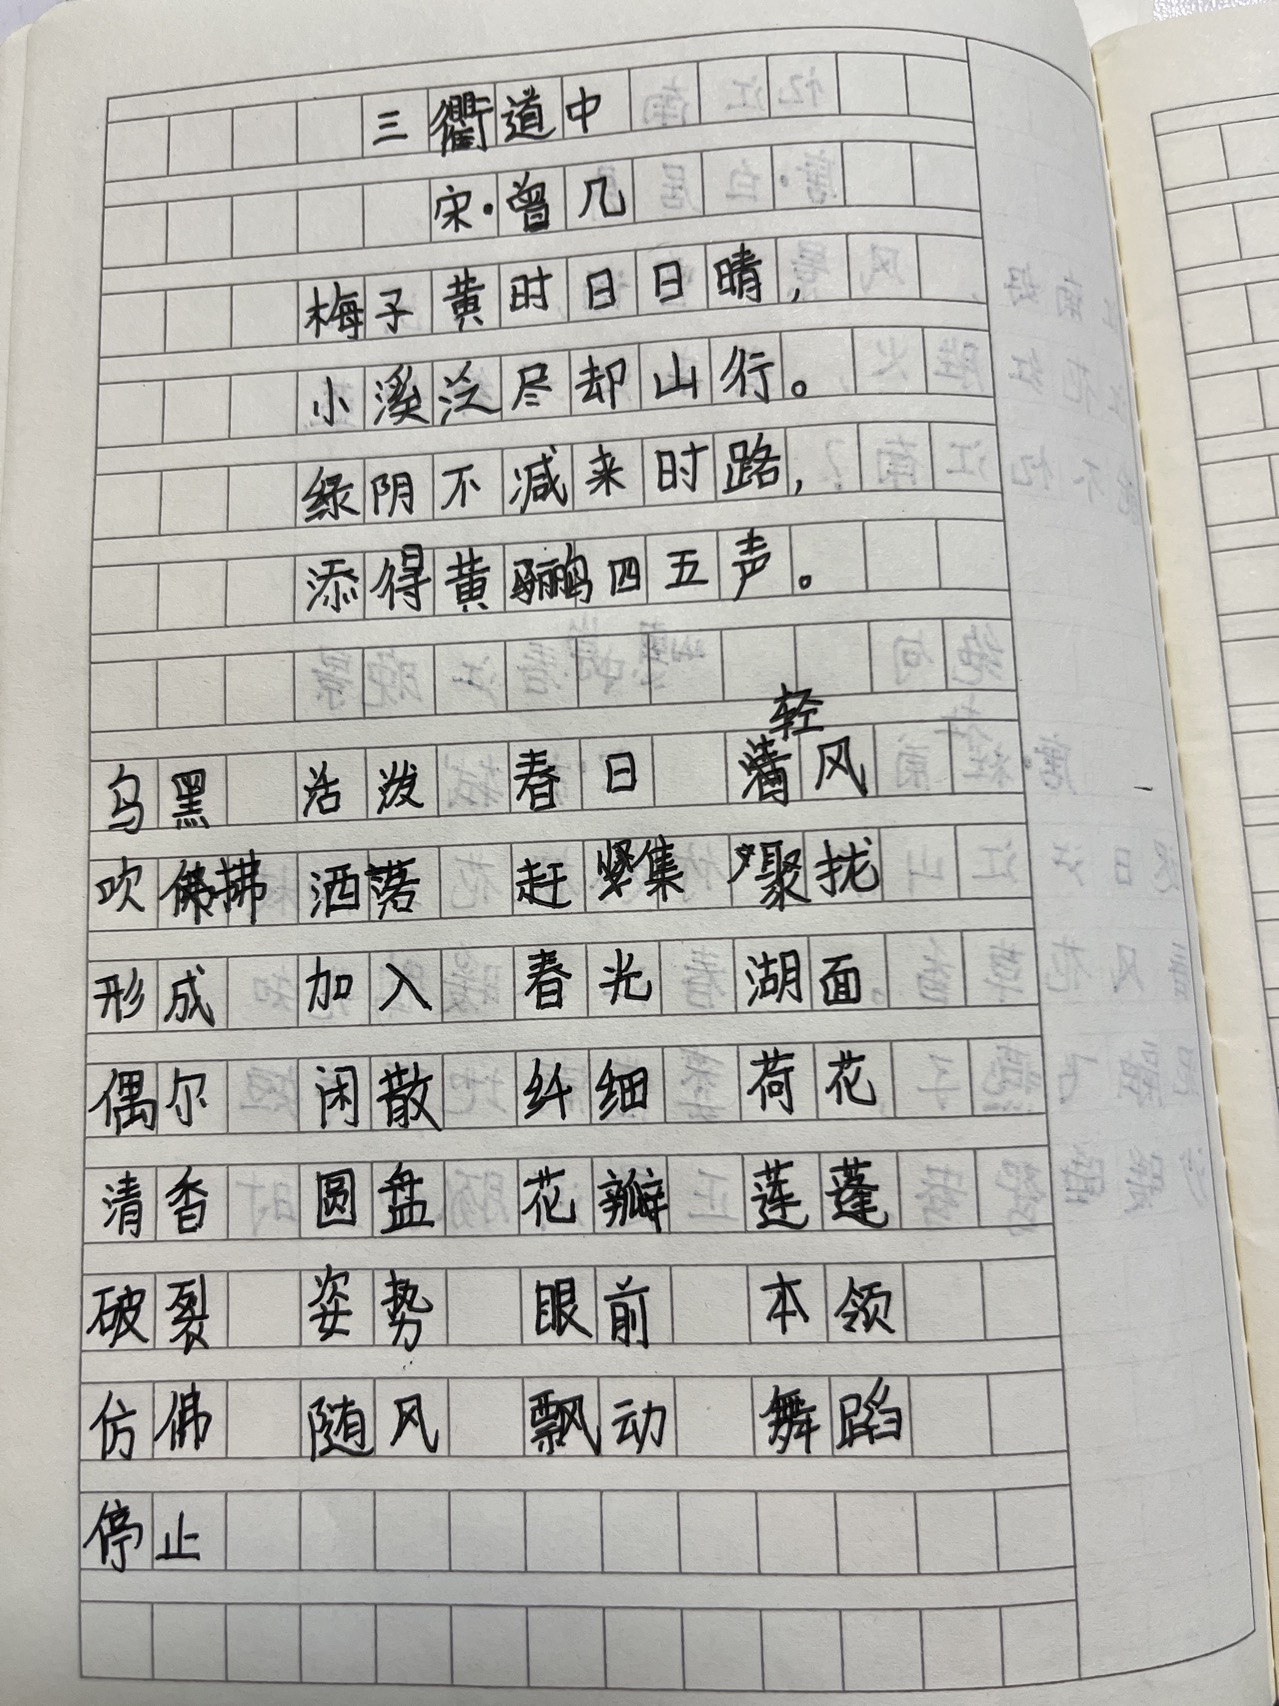 三衢道中
宋·曾几
梅子黄时日日晴，
小溪泛尽却山行。
绿阴不减来时路，
添得黄鹂四五声。
乌黑 活泼 春日 轻风
吹拂 洒落 赶集 聚拢
形成 加入 春光 湖面
偶尔 闲散 纤细 荷花
清香 圆盘 花瓣 莲蓬
破裂 姿势 眼前 本领
仿佛 随风 飘动 舞蹈
停止